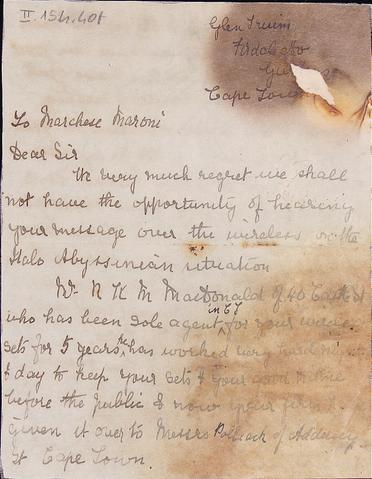 II. 154.401
Glen
Cape Town
To Marchese Maroni
Dear Sir
We very much regret we shall
not have the opportunity of hearing
your message over the wireless on the
Italo Abyssinian situation
Mr N K M MacDonald of 40 Castle St
who has been sole agent in C.T. for your
sets for 5 years, he has worked very hard
& day to keep your sets & your
before the public & now your firm
given it over to Messrs Pollack of Adderley
St Cape Town.